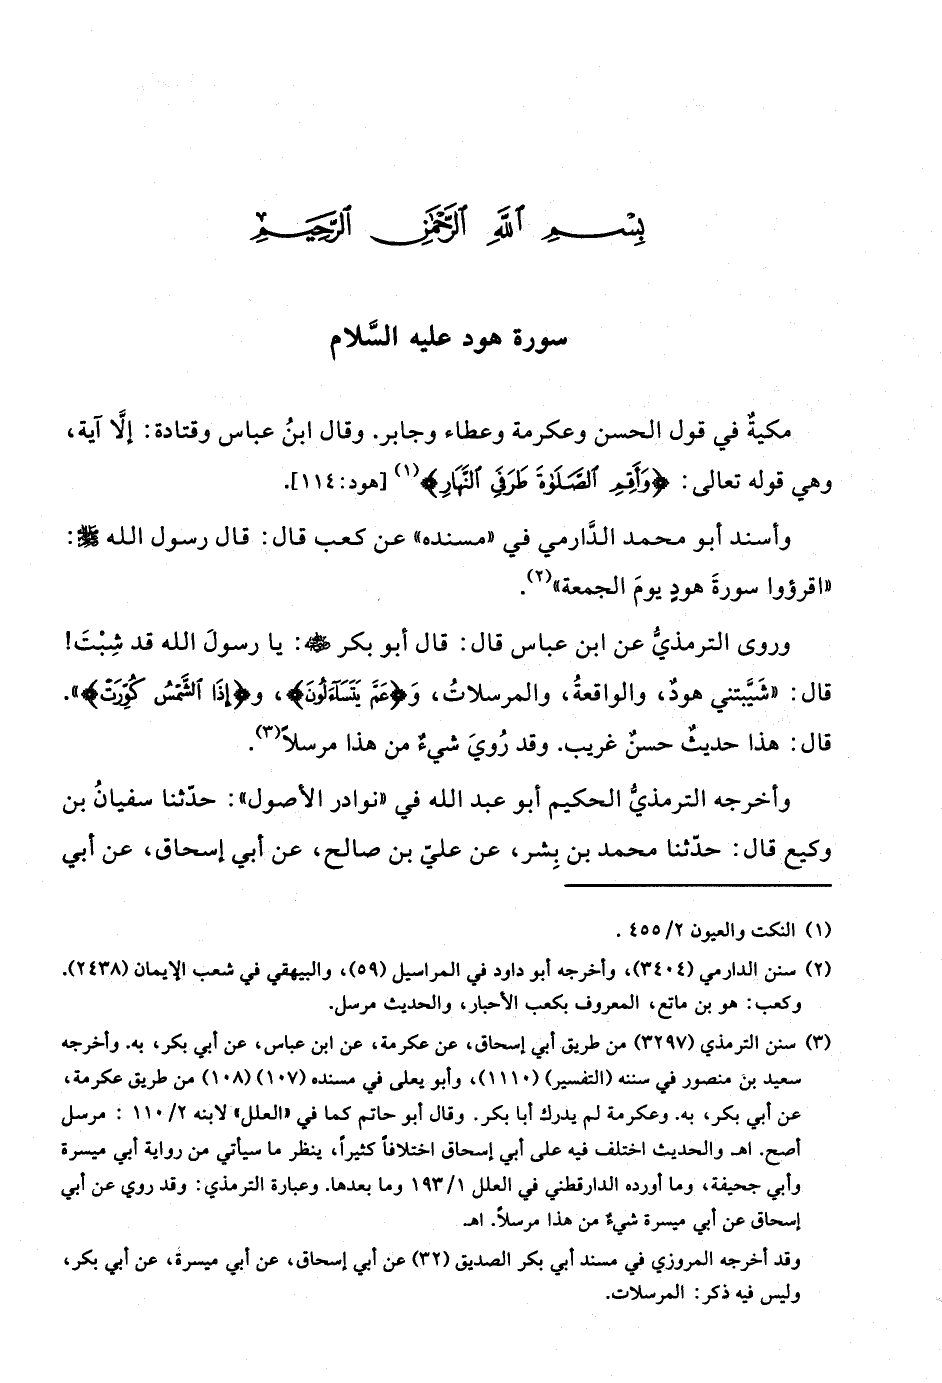 بِسْمِ ٱللَّهِ ٱلرَّحْمَٰنِ ٱلرَّحِيمِ
سورة هود عليه السَّلام
مكيةٌ في قول الحسن وعكرمة وعطاء وجابر. وقال ابنُ عباس وقتادة: إلَّا آية،
وهي قوله تعالى: ﴿وَأَقِمِ ٱلصَّلَوٰةَ طَرَفَيِ ٱلنَّهَارِ﴾(١) [هود:١١٤].
وأسند أبو محمد الدَّارمي في «مسنده» عن كعب قال: قال رسول الله ﷺ:
«اقرؤوا سورةَ هودٍ يومَ الجمعة»(٢).
وروى الترمذيُّ عن ابن عباس قال: قال أبو بكر رضي الله عنه: يا رسولَ الله قد شِبْتَ!
قال: «شَيَّبتني هودٌ، والواقعةُ، والمرسلاتُ، وَ﴿عَمَّ يَتَسَآءَلُونَ﴾، و﴿إِذَا ٱلشَّمْسُ كُوِّرَتْ﴾».
قال: هذا حديثٌ حسنٌ غريب. وقد رُويَ شيءٌ من هذا مرسلاً(٣).
وأخرجه الترمذيُّ الحكيم أبو عبد الله في «نوادر الأصول»: حدّثنا سفيانُ بن
وكيع قال: حدّثنا محمد بن بِشر، عن عليّ بن صالح، عن أبي إسحاق، عن أبي
(١) النكت والعيون ٢/ ٤٥٥ .
(٢) سنن الدارمي (٣٤٠٤)، وأخرجه أبو داود في المراسيل (٥٩)، والبيهقي في شعب الإيمان (٢٤٣٨).
وكعب: هو بن ماتع، المعروف بكعب الأحبار، والحديث مرسل.
(٣) سنن الترمذي (٣٢٩٧) من طريق أبي إسحاق، عن عكرمة، عن ابن عباس، عن أبي بكر، به. وأخرجه
سعيد بن منصور في سننه (التفسير) (١١١٠)، وأبو يعلى في مسنده (١٠٧) (١٠٨) من طريق عكرمة،
عن أبي بكر، به. وعكرمة لم يدرك أبا بكر. وقال أبو حاتم كما في «العلل» لابنه ٢/ ١١٠ : مرسل
أصح. اهـ والحديث اختلف فيه على أبي إسحاق اختلافاً كثيراً، ينظر ما سيأتي من رواية أبي ميسرة
وأبي جحيفة، وما أورده الدارقطني في العلل ١/ ١٩٣ وما بعدها. وعبارة الترمذي: وقد روي عن أبي
إسحاق عن أبي ميسرة شيءٌ من هذا مرسلاً. اهـ
وقد أخرجه المروزي في مسند أبي بكر الصديق (٣٢) عن أبي إسحاق، عن أبي ميسرة، عن أبي بكر،
وليس فيه ذكر: المرسلات.